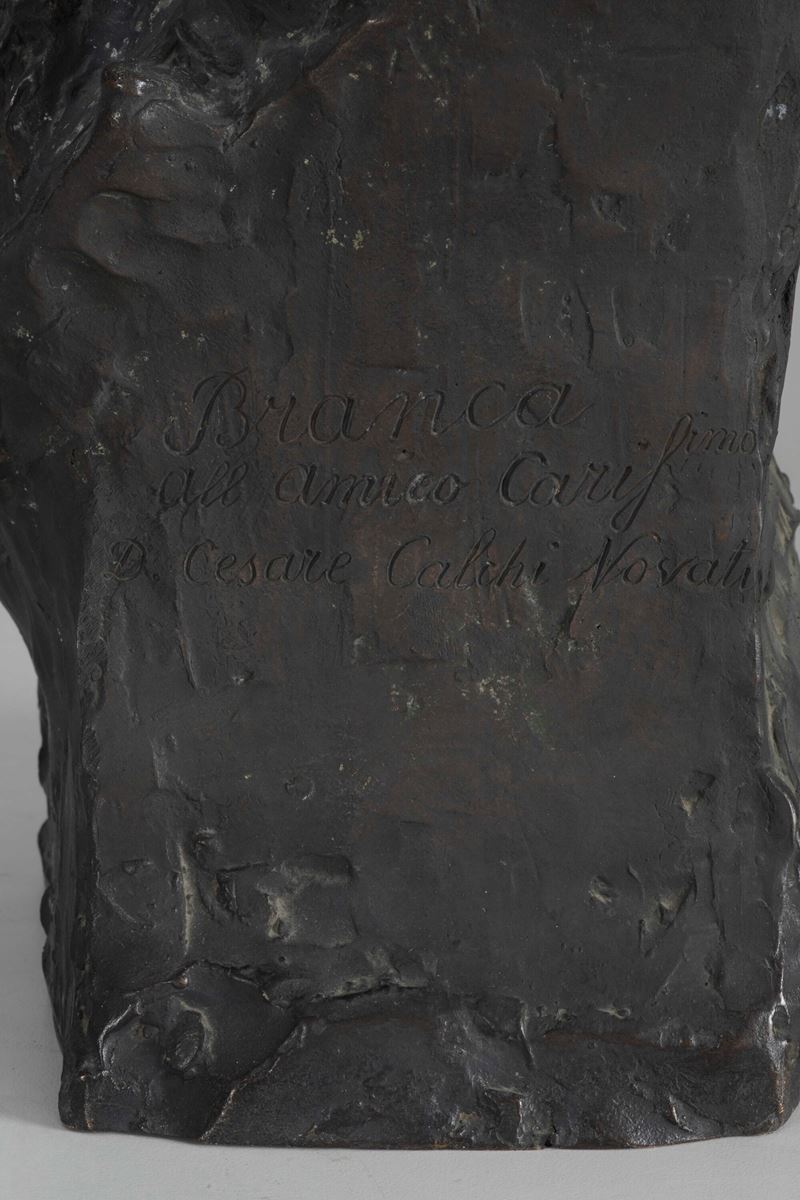 Branca
all amico Carissimo
D. Cesare Calchi Novati